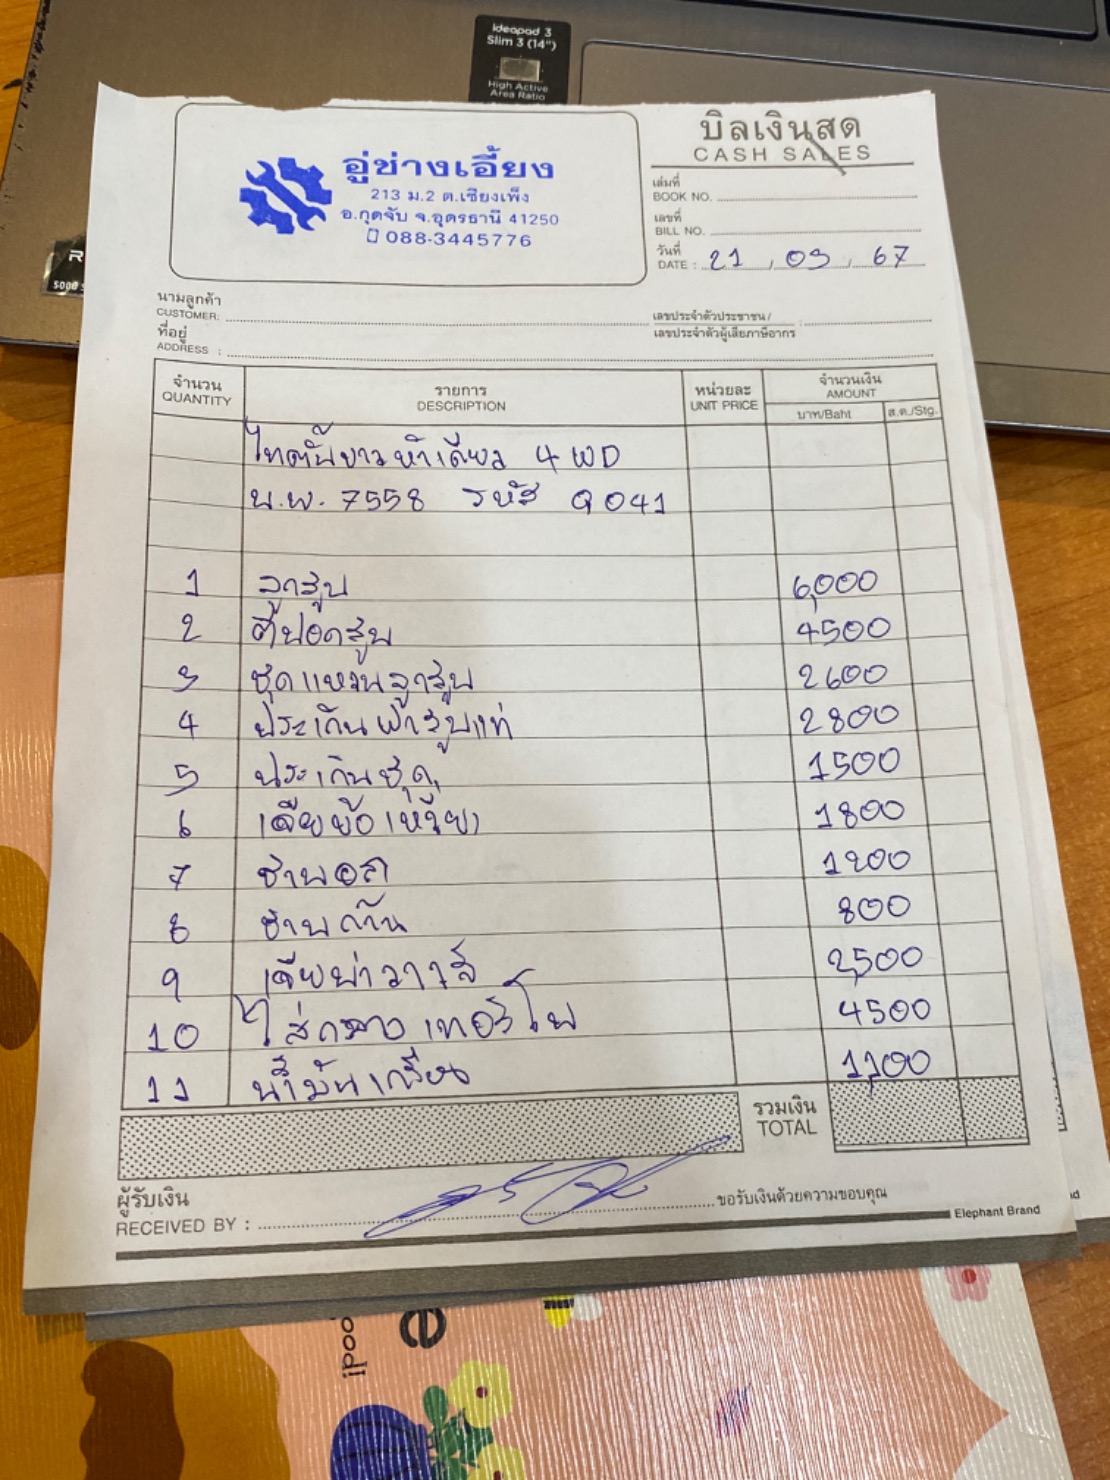 ideapad 3
Slim 3 (14")
High Active
Area Ratio
อู่ช่างเอี้ยง
213 ม.2 ต.เชียงเพ็ง
อ.กุดจับ จ.อุดรธานี 41250
088-3445776
บิลเงินสด
CASH SALES
เล่มที่
BOOK NO.
เลขที่
BILL NO.
วันที่
DATE : 21 , 09 , 67
นามลูกค้า
CUSTOMER:
เลขประจำตัวประชาชน /
เลขประจำตัวผู้เสียภาษีอากร :
ที่อยู่
ADDRESS :
จำนวน รายการ หน่วยละ จำนวนเงิน
QUANTITY DESCRIPTION UNIT PRICE AMOUNT
บาท/Baht ส.ต./Stg.
ไทตั้นขาวหัวเดียว 4 WD
บ.พ. 7558 รหัส Q041
1 ลูกสูบ 6,000
2 ตีปอกสูบ 4500
3 ชุดแหวนลูกสูบ 2600
4 ประเก็นฝาสูบแท่ 2800
5 ประเก็นชุด 1500
6 เจียข้อเหวี่ยง 1800
7 ชาพอก 1200
8 ชาพก้าน 800
9 เจียบ่าวาวล์ 2,500
10 ไส้กลาง เทอร์โบ 4500
11 น้ำมันเครื่อง 1,100
รวมเงิน
TOTAL
ผู้รับเงิน
RECEIVED BY : ขอรับเงินด้วยความขอบคุณ
Elephant Brand